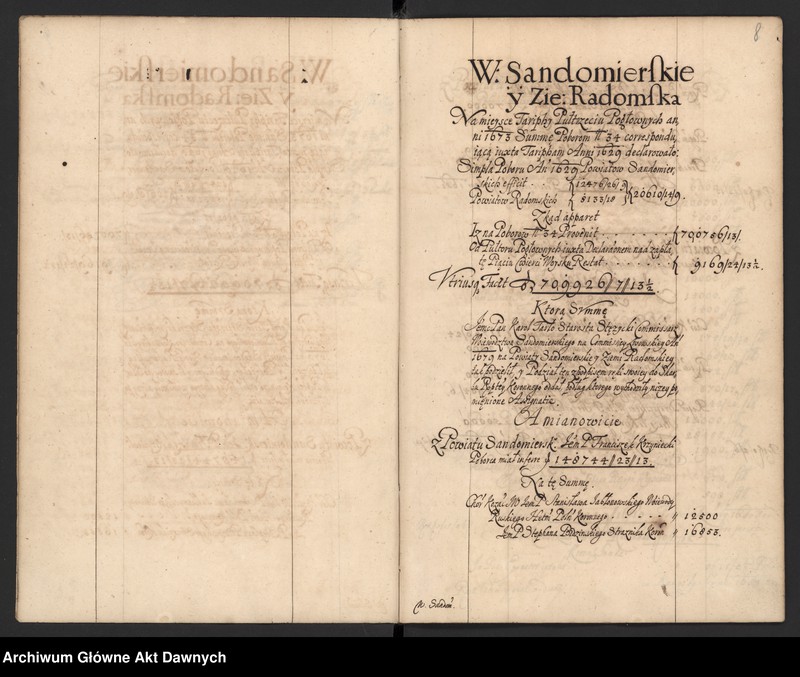 8
W: Sandomierskie
ÿ Zie: Radomska
Na miejsce Tariphy Pułtrzeciu Pogłownych an„
ni 1673 Summę Poborem n 34 correspondu„
iącą iuxta Taripham Anni 1629 declarowało:
Simpla Poboru An 1629 Powiatow Sandomier„
skich efficit . . 12476/26/9
Powiatow Radomskich 8133/18 20610/14/9.
Zkąd apparet
Iż na Poborow n 34 Proönit . . . . . . . 700756/13/.
Od Pułtoru Pogłownych iuxta Declarationem na d zapła„
tę Piąciu Czwierci Woysku Restat . . . . . . . 9169/24/13½.
Vtriusq Facit 709926/7/13½
Ktorą Summę
Jem: Pan Karol Tarło Starosta Stężycki Commissarz
Woiewodztwa Sandomierskiego na Commissiey Lwowskiey A
1679 na Powiaty Sandomierskie y Ziemi Radomskiey
tak podzielił, y Podział ten z podpisem ręki swoiey do Skar„
bu Rzptey Koronnego oddał, podług ktorego wychodziły niżey po„
mienione Assignatie.
A mianowicie
Z Powiatu Sandomiersk: Jem P Franciszek
Poborca miał inferre 148744//23//13.
Na tę Summę.
Chor: JW Jem P Stanisława Jabłonowskiego Woiewody
Ruskiego Hetm Poln Koronnego . . . . . . „ 12500
Jem P Stephana Strażnika Koron „ 16853.
W. Sandom:
Archiwum Główne Akt Dawnych